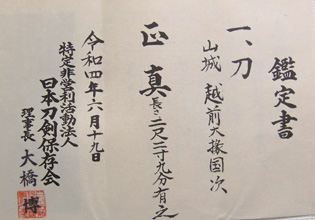 鑑定書
一、刀
山城 越前大掾国次
正真 長さ二尺二寸九分有之
令和四年六月十九日
特定非営利活動法人
日本刀剣保存会
理事長 大橋 博